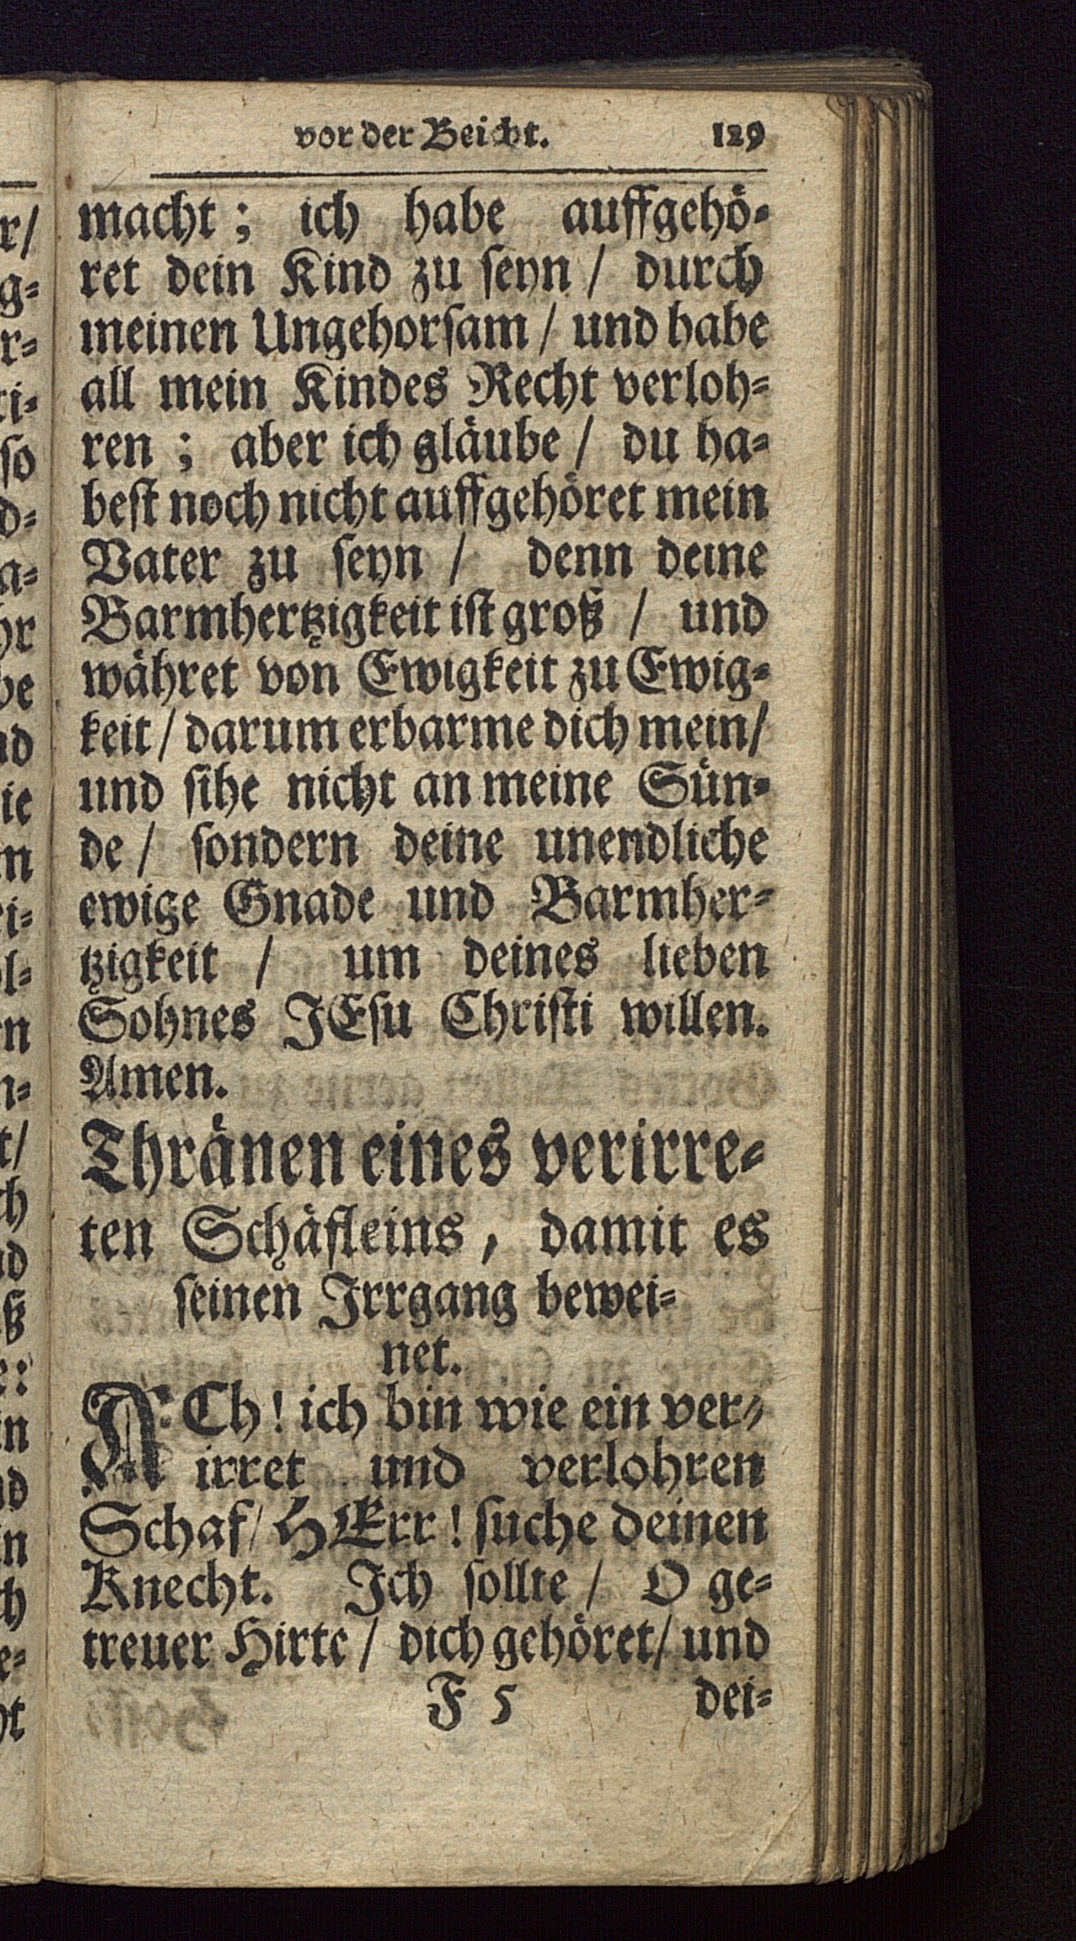 vor der Beicht. 129
macht ; ich habe auffgehö⸗
ret dein Kind zu ſeyn / durch
meinen Ungehorſam / und habe
all mein Kindes Recht verloh⸗
ren ; aber ich gläube / du ha⸗
beſt noch nicht auffgehöret mein
Vater zu ſeyn / denn deine
Barmhertzigkeit iſt groß / und
währet von Ewigkeit zu Ewig⸗
keit / darum erbarme dich mein /
und ſihe nicht an meine Sün⸗
de / ſondern deine unendliche
ewige Gnade und Barmher⸗
tzigkeit / um deines lieben
Sohnes JEſu Chriſti willen.
Amen.
Thränen eines verirre⸗
ten Schäfleins, damit es
ſeinen Irrgang bewei⸗
net.
ACh! ich bin wie ein ver⸗
irret und verlohren
Schaf / HErr! ſuche deinen
Knecht. Ich ſollte / O ge⸗
treuer Hirte / dich gehöret / und
F 5 dei⸗